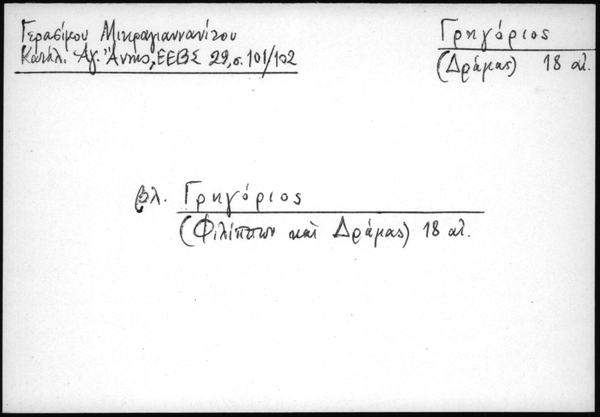 Γερασίμου Μικραγιαννανίτου
Κατάλ. Ἁγ. Ἄννης, ΕΕΒΣ 29, σ. 101/102
Γρηγόριος
(Δράμας) 18 αἰ.
βλ. Γρηγόριος
(Φιλίππων καὶ Δράμας) 18 αἰ.